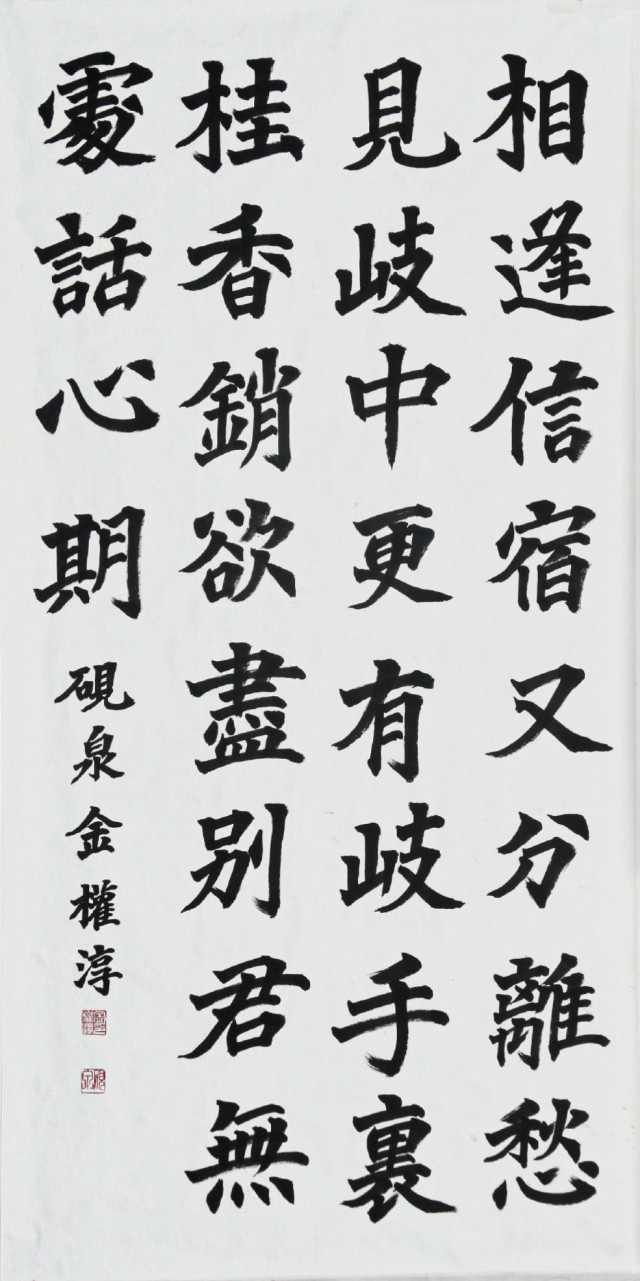 相逢信宿又分離愁
見歧中更有歧手裏
桂香銷欲盡別君無
處話心期
硯泉金權淳